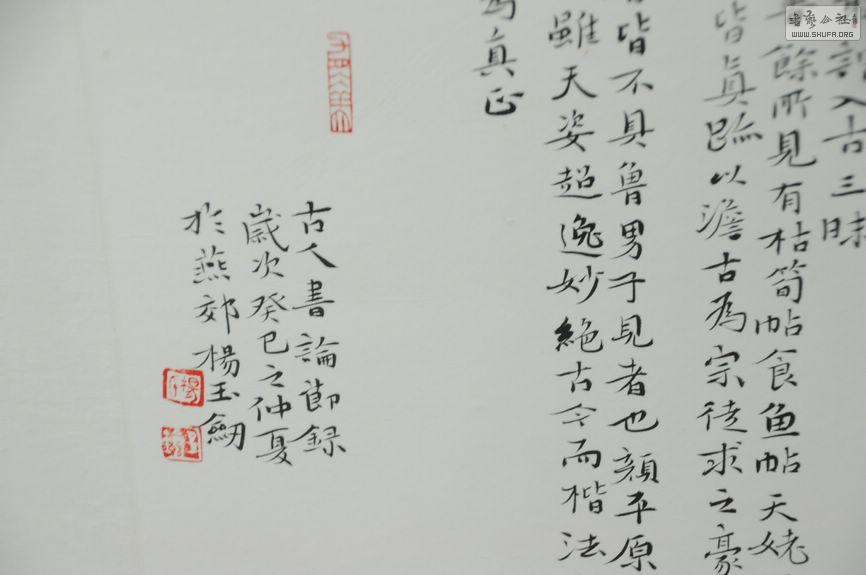 謂入古三昧
餘所見有枯筍帖食魚帖天姥
皆真跡以澹古為宗徒求之豪
皆不具魯男子見者也顏平原
雖天姿超逸妙絕古今而楷法
為真正
古人書論節録
歲次癸巳之仲夏
於燕郊楊玉劒
書藝公社
WWW.SHUFA.ORG